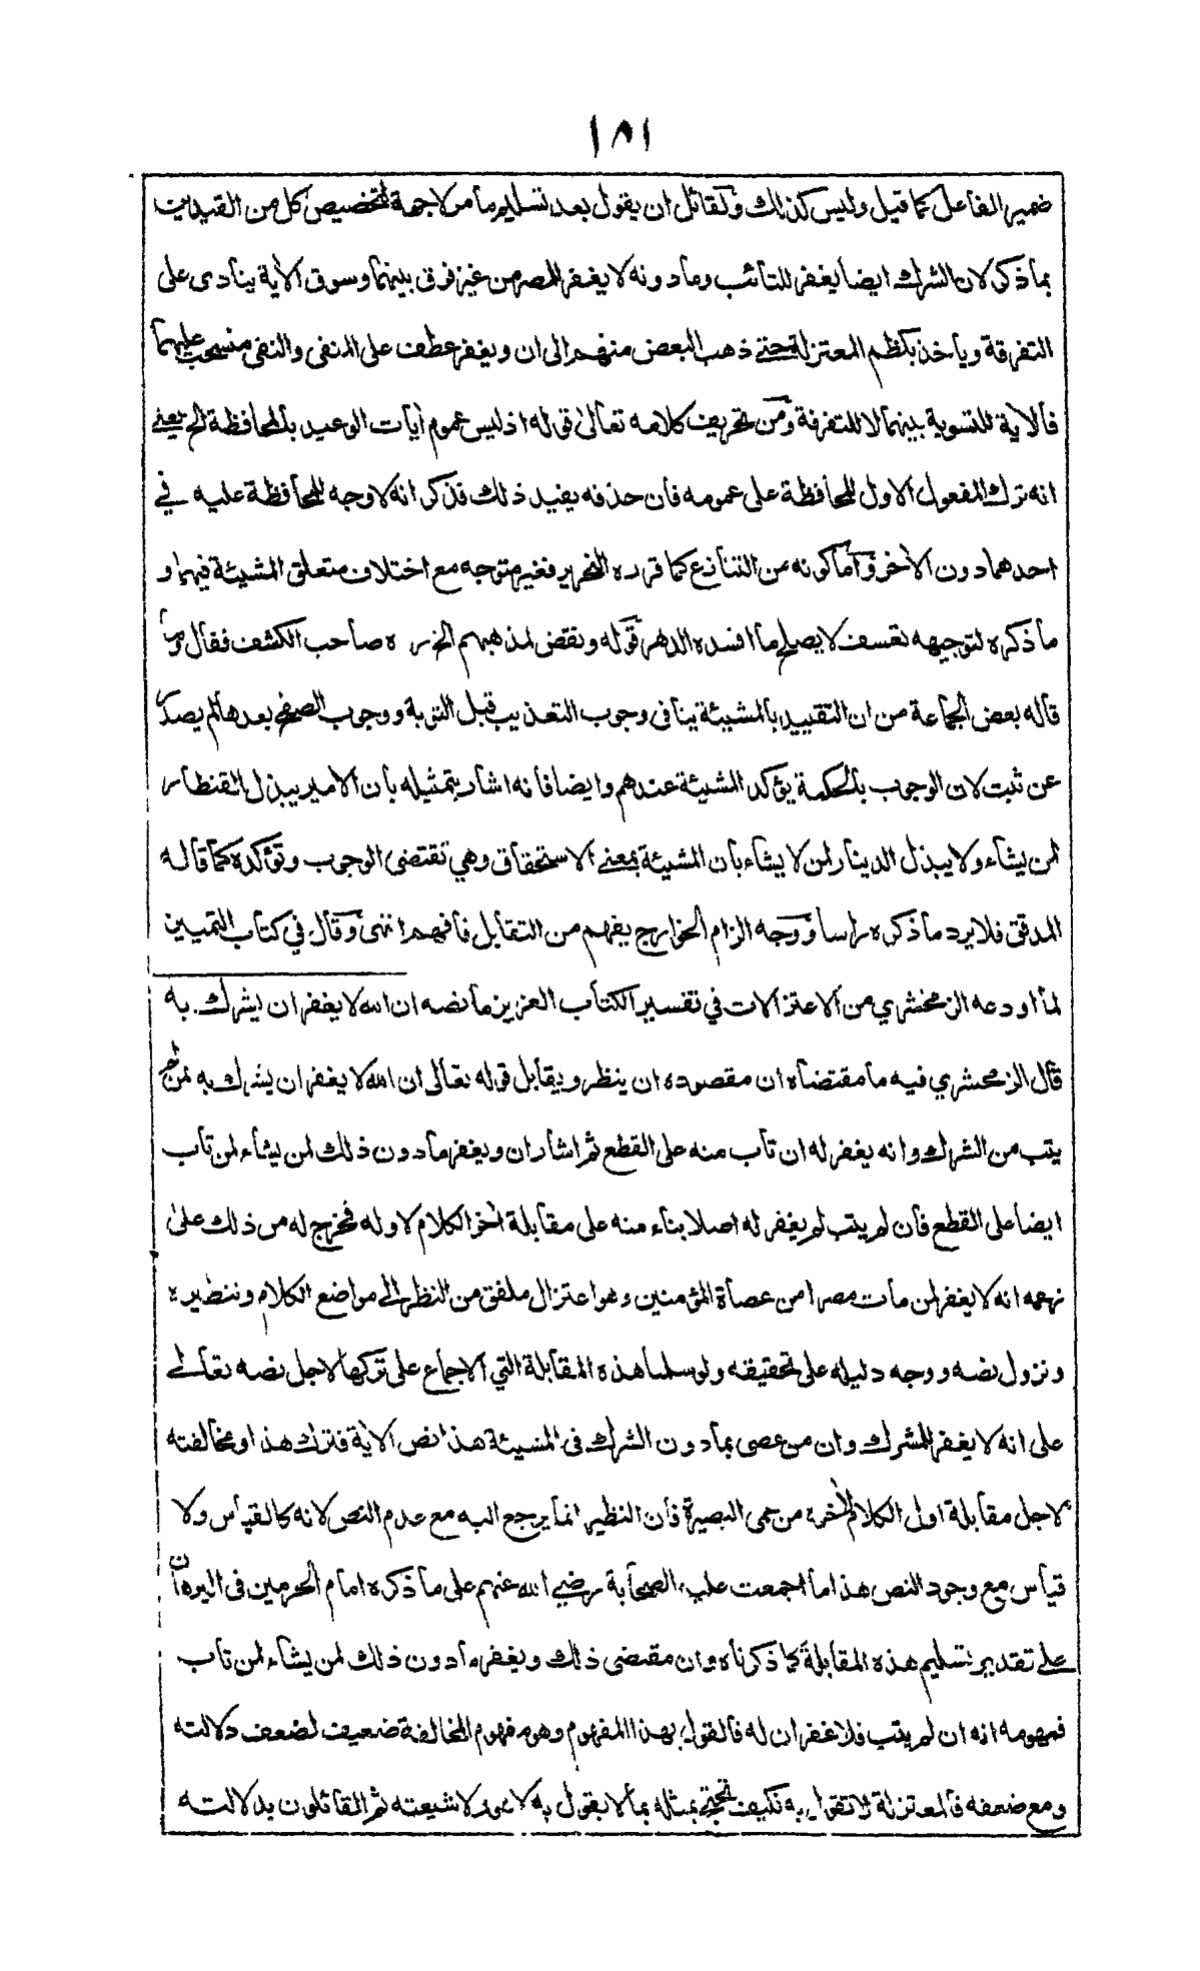 ١٨١
ضمير الفاعل كما قيل وليس كذلك ولقائل ان يقول بعد تسليم ما مر لا جهة لتخصيص كل من القيدين
بما ذكر لان الشرك ايضا يغفر للتائب وما دونه لا يغفر للمصر من غير فرق بينهما وسوق الآية ينادى على
التفرقة وياخذ بكظم المعتزلة حتى ذهب البعض منهم الى ان ويغفر عطف على المنفى والنفى منسحب عليهما
فالآية للتسوية بينهما لا للتفرقة ومن تحريف كلامه تعالى قوله اذ ليس عموم آيات الوعيد بالمحافظة الخ يعنى
انه ترك المفعول الاول للمحافظة على عمومه فان حذفه يفيد ذلك فذكر انه لا وجه للمحافظة عليه في
احدهما دون الآخر وأما كونه من التنازع كما قرره النحرير فغير متوجه مع اختلاف متعلق المشيئة فيهما و
ما ذكره لتوجيهه تعسف لا يصلح ما افسده الدهر قوله ونقض لمذهبهم الخ ره صاحب الكشف فقال وما
قاله بعض الجماعة من ان التقييد بالمشيئة ينافى وجوب التعذيب قبل التوبة ووجوب الصفح بعدها لم يصدر
عن ثبت لان الوجوب بالحكمة يؤكد المشيئة عندهم وايضا فانه اشار بتمثيله بان الامير يبذل القنطار
لمن يشاء ولا يبذل الدينار لمن لا يشاء بان المشيئة بمعنى الاستحقاق وهي تقتضى الوجوب وتؤكده كما قاله
المدقق فلا يرد ما ذكره راسا ووجه الزام الخوارج يفهم من التقابل فافهم انتهى وقال في كتاب التمييز
لما اودعه الزمخشري من الاعتزالات في تفسير الكتاب العزيز ما نصه ان الله لا يغفر ان يشرك به
قال الزمخشري فيه ما مقتضاه ان مقصوده ان ينظر ويقابل قوله تعالى ان الله لا يغفر ان يشرك به لمن لم
يتب من الشرك وانه يغفر له ان تاب منه على القطع ثم اشار ان ويغفر ما دون ذلك لمن يشاء لمن تاب
ايضا على القطع فان لم يتب لم يغفر له اصلا بناء منه على مقابلة آخر الكلام لاوله فخرج له من ذلك على
زعمه انه لا يغفر لمن مات مصرا من عصاة المؤمنين وهو اعتزال ملفق من النظر الى مواضع الكلام وتنظيره
ونزول نصه ووجه دليله على تحقيقه ولو سلمنا هذه المقابلة التي الاجماع على تركها لاجل نصه تعالى
على انه لا يغفر للمشرك وان من عصى بما دون الشرك فى المشيئة هذا نص الآية فترك هذا او مخالفته
لاجل مقابلة اول الكلام لآخره من عمى البصيرة فان النظير انما يرجع اليه مع عدم النص لانه كالقياس ولا
قياس مع وجود النص هذا ما اجمعت عليه الصحابة رضي الله عنهم على ما ذكره امام الحرمين فى البرهان
على تقدير تسليم هذه المقابلة كما ذكرناه وان مقتضى ذلك ويغفر ما دون ذلك لمن يشاء لمن تاب
فمفهومه انه ان لم يتب فلا غفران له فالقول بهذا المفهوم وهو مفهوم المخالفة ضعيف لضعف دلالته
ومع ضعفه فالمعتزلة لا تقول به فكيف تحتج بمثله بما لا يقول به لا هو ولا شيعته ثم القائلون بدلالته